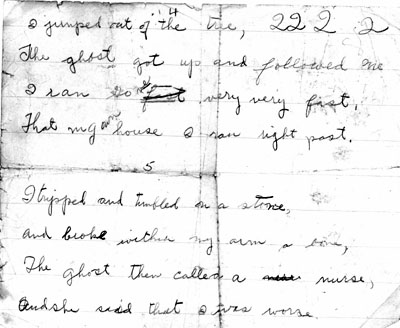 4
I jumped out of the tree, 22 2 2
The ghost got up and followed me
I ran so very very fast,
That my own house I ran right past.
5
I tripped and tumbled on a stone,
and broke within my arm a bone,
The ghost then called a nurse,
And she said that I was worse.